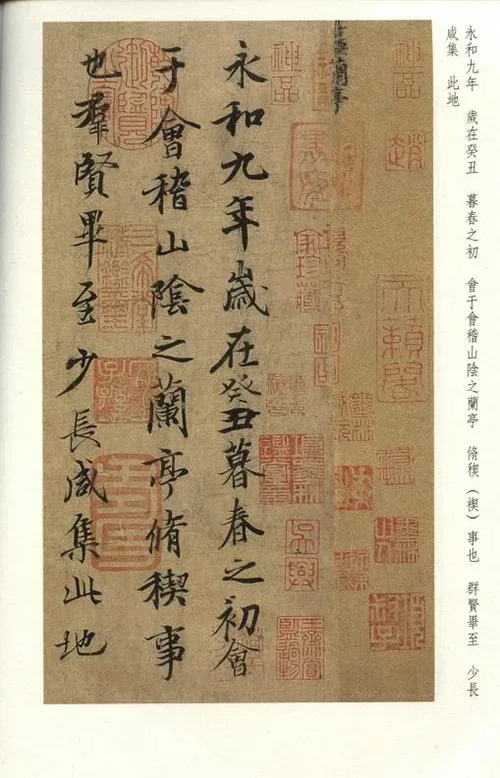 永和九年 歲在癸丑 暮春之初 會于會稽山陰之蘭亭 脩稧（禊）事也 群賢畢至 少長
咸集 此地
神品
趙
天籟閣
蘭亭
神品
永和九年歲在癸丑暮春之初會
于會稽山陰之蘭亭脩稧事
也羣賢畢至少長咸集此地